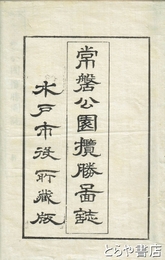 常磐公園攬勝圖誌
水戸市役所藏版
とらや書房